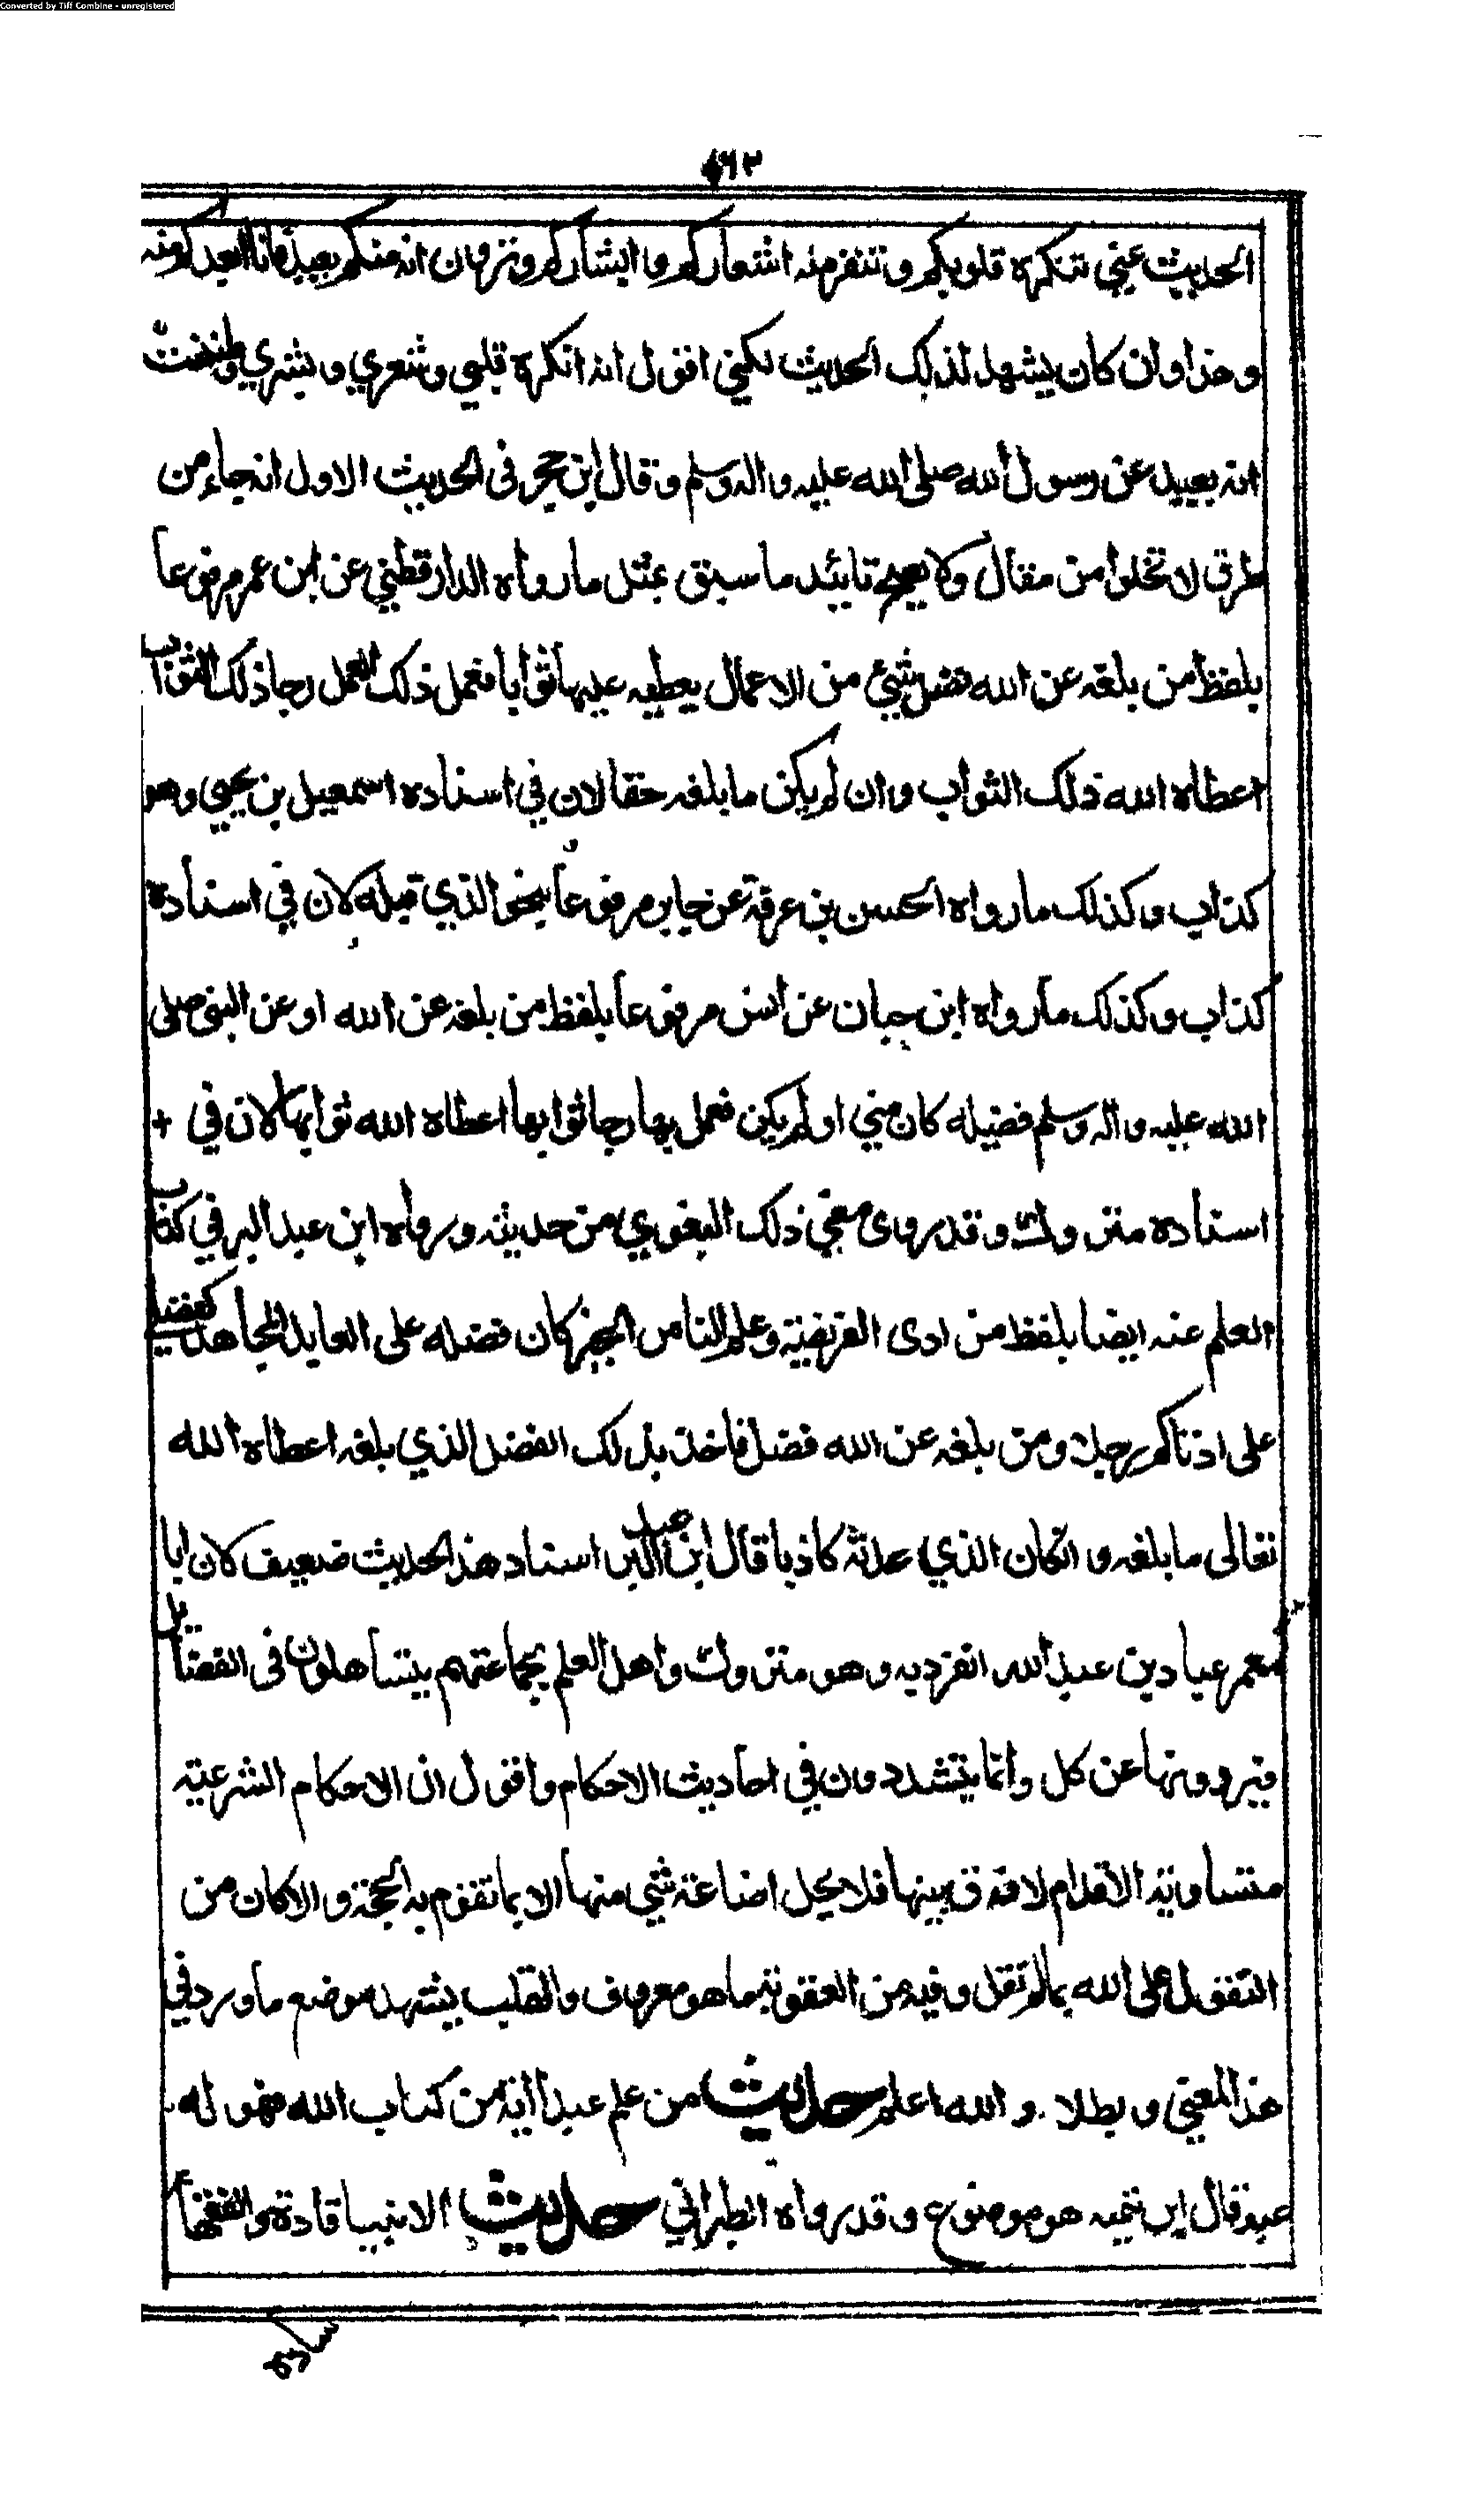 Converted by Tiff Combine - unregistered
الحديث عني تنكره قلوبكم وتنفر منه اشعاركم وابشاركم وترون انه منكم بعيد فانا ابعدكم منه
وهذا وان كان يشهد لذلك الحديث لكني اقول انه انكره قلبي وشعري وبشري وظننت
انه بعيد عن رسول الله صلى الله عليه واله وسلم وقال ابن حجر في الحديث الاول انه جاء من
طرق لا تخلوا من مقال ولا يصح تايئد ما سبق بمثل ما رواه الدارقطني عن ابن عمر مرفوعا
بلفظ من بلغه عن الله فضل شيئ من الاعمال يعطيه عليها ثوابا فعمل ذلك العمل رجا ذلك الثواب
اعطاه الله ذلك الثواب وان لم يكن ما بلغه حقا لان في اسناده اسمعيل بن يحيى وهو
كذاب وكذلك ما رواه الحسن بن عرفة عن جابر مرفوعا بنحو الذي قبله لان في اسناده
كذاب وكذلك ما رواه ابن حبان عن انس مرفوعا بلفظ من بلغه عن الله او عن النبي صلى
الله عليه واله وسلم فضيله كان مني او لم يكن فعمل بها رجا ثوابها اعطاه الله ثوابها لان في +
اسناده متروك وقد روى معنى ذلك البغوي من حديثه ورواه ابن عبد البر في كتاب
العلم عنه ايضا بلفظ من ادى الفريضة وعلم الناس الخير كان فضله على العابد المجاهد كفضلي
على ادناكم رجلا ومن بلغه عن الله فضل فاخذ بذلك الفضل الذي بلغه اعطاه الله
تعالى ما بلغه وان كان الذي حدثه كاذبا قال ابن عبد البر اسناد هذا الحديث ضعيف لان ابا
معمر عباد بن عبد الله انفرد به وهو متروك واهل العلم بجماعتهم يتساهلون في الفضائل
فيروونها عن كل وانما يتشددون في احاديث الاحكام واقول ان الاحكام الشرعية
متساوية الاقدام لا فرق بينها فلا يحل اضاعة شي منها الا بما تقوم به الحجة والا كان من
التقول على الله بما لم تقل وفيه من العقوبة ما هو معروف والقلب يشهد بوضع ما ورد في
هذا المعنى وبطلا. والله اعلم حديث من علم عبدا اية من كتاب الله فهو له
عبد قال ابن تيميه هو موضوع وقد رواه الطبراني حديث الانبيا قادة والفقها